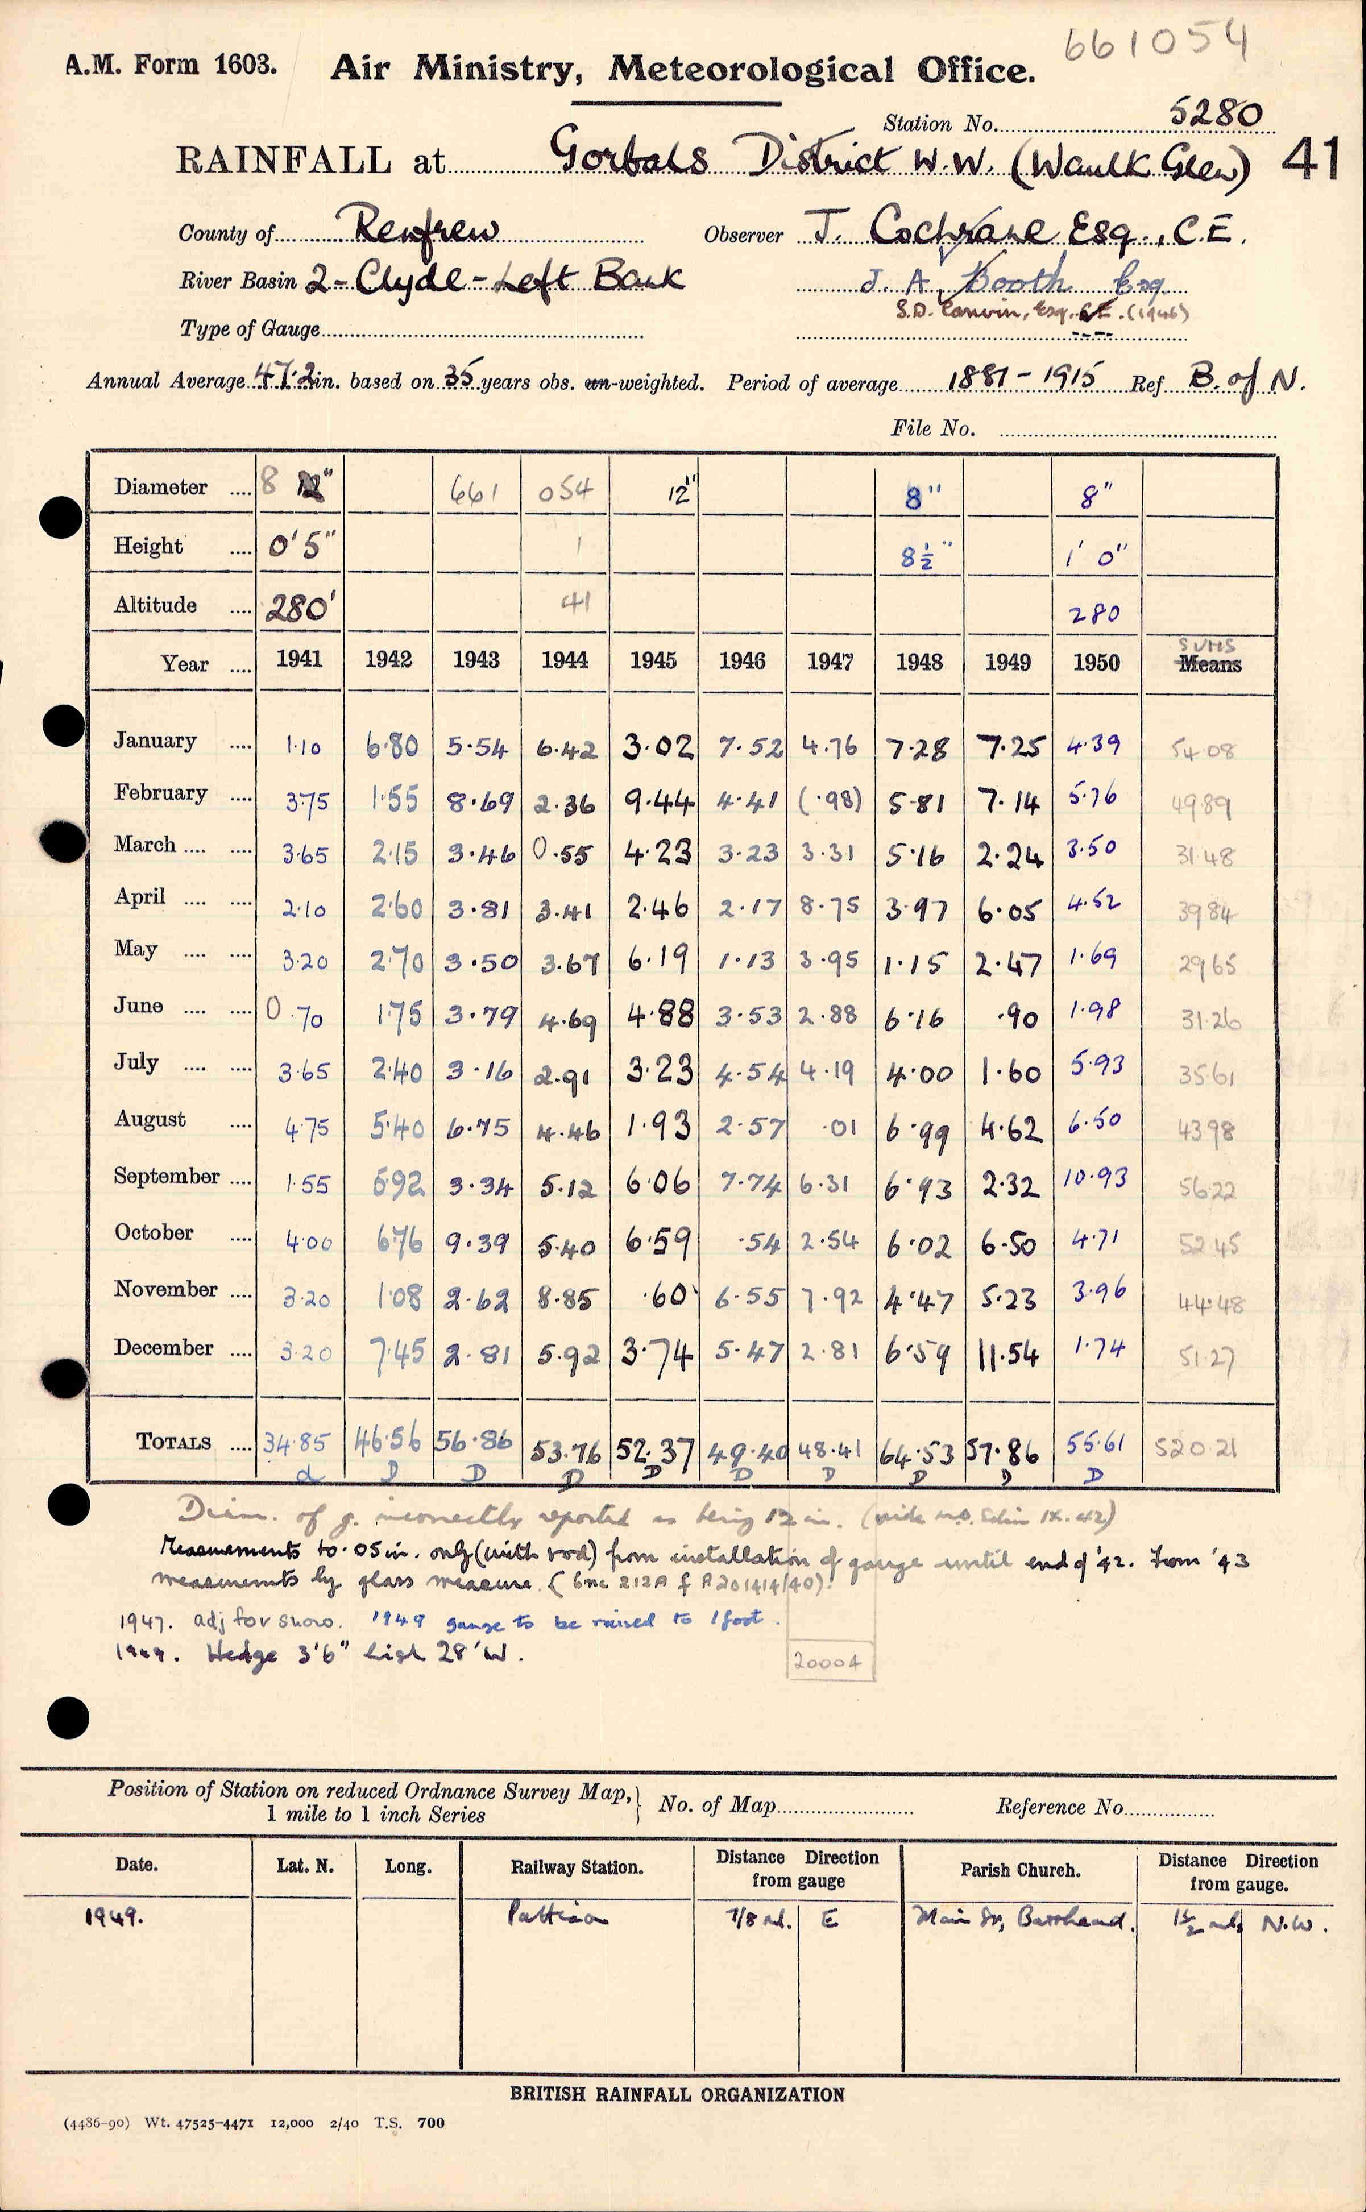 661054
A.M. Form 1603. Air Ministry, Meteorological Office.
Station No. 5280
RAINFALL at Gorbals District W.W. (Waulk Glen) 41
County of Renfrew Observer J. Cochrane Esq., C.E.
River Basin 2-Clyde-Left Bank J. A. Booth Esq
S.D. Canvin, Esq. C.E. (1946)
Type of Gauge
Annual Average 47.2 in. based on 35 years obs. un-weighted. Period of average 1881-1915 Ref B. of N.
File No.
Diameter .... 8 12" 661 054 12" 8" 8"
Height .... 0'5" 1 8½" 1' 0"
Altitude .... 280' 41 280
SUMS
Year .... 1941 1942 1943 1944 1945 1946 1947 1948 1949 1950 Means
January .... 1.10 6.80 5.54 6.42 3.02 7.52 4.76 7.28 7.25 4.39 54.08
February .... 3.75 1.55 8.69 2.36 9.44 4.41 (.98) 5.81 7.14 5.76 49.89
March .... .... 3.65 2.15 3.46 0.55 4.23 3.23 3.31 5.16 2.24 3.50 31.48
April .... .... 2.10 2.60 3.81 3.41 2.46 2.17 8.75 3.97 6.05 4.52 39.84
May .... .... 3.20 2.70 3.50 3.67 6.19 1.13 3.95 1.15 2.47 1.69 29.65
June .... .... 0.70 1.75 3.79 4.69 4.88 3.53 2.88 6.16 .90 1.98 31.26
July .... .... 3.65 2.40 3.16 2.91 3.23 4.54 4.19 4.00 1.60 5.93 35.61
August .... 4.75 5.40 6.75 4.46 1.93 2.57 .01 6.99 4.62 6.50 43.98
September .... 1.55 5.92 3.34 5.12 6.06 7.74 6.31 6.93 2.32 10.93 56.22
October .... 4.00 6.76 9.39 5.40 6.59 .54 2.54 6.02 6.50 4.71 52.45
November .... 3.20 1.08 2.62 8.85 .60 6.55 7.92 4.47 5.23 3.96 44.48
December .... 3.20 7.45 2.81 5.92 3.74 5.47 2.81 6.59 11.54 1.74 51.27
TOTALS .... 34.85 46.56 56.86 53.76 52.37 49.40 48.41 64.53 57.86 55.61 520.21
d D D D D D D D D D
Diam. of g. incorrectly reported as being 12 in. (vide IX.42)
Measurements to .05in. only (with rod) from installation of gauge until end of '42. From '43
measurements by glass measure. ( 212A f A201414/40).
1947. adj for snow. 1949 gauge to be raised to 1 foot.
1949. Hedge 3'6" high 28' W.
20004
Position of Station on reduced Ordnance Survey Map, 1 mile to 1 inch Series } No. of Map Reference No.
Date. Lat. N. Long. Railway Station. Distance Direction from gauge Parish Church. Distance Direction from gauge.
1949. Patterton 7/8 ml. E Main St, Barrhead. 1½ mls N.W.
BRITISH RAINFALL ORGANIZATION
(4486-90) Wt. 47525-4471 12,000 2/40 T.S. 700